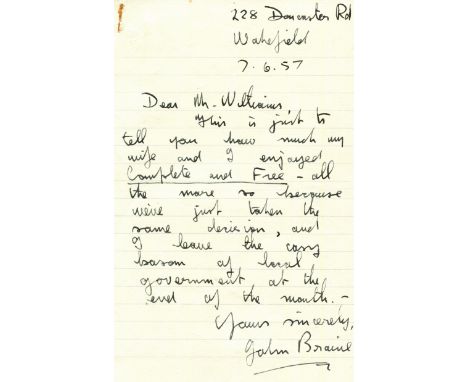 228 Doncaster Rd
Wakefield
7.6.57
Dear Mr. Williams,
This is just to
tell you how much my
wife and I enjoyed
Complete and Free - all
the more so because
we've just taken the
same decision, and
I leave the cosy
bosom of local
government at the
end of the month. -
Yours sincerely,
John Braine